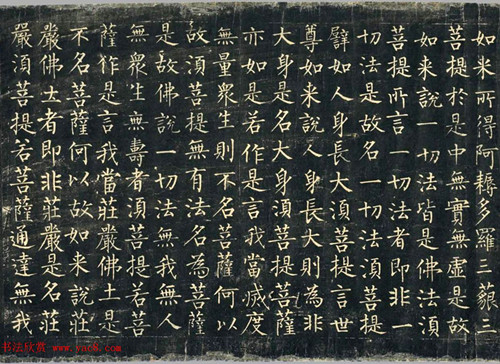 如来所得阿耨多羅三藐三
菩提於是中無實無虛是故
如来說一切法皆是佛法湏
菩提所言一切法者即非一
切法是故名一切法湏菩提
譬如人身長大湏菩提言世
尊如来說人身長大則為非
大身是名大身湏菩提菩薩
亦如是若作是言我當滅度
無量衆生則不名菩薩何以
故湏菩提無有法名為菩薩
是故佛說一切法無我無人
無衆生無壽者湏菩提若菩
薩作是言我當莊嚴佛土是
不名菩薩何以故如来說莊
嚴佛土者即非莊嚴是名莊
嚴湏菩提若菩薩通達無我
书法欣赏 www.yac8.com